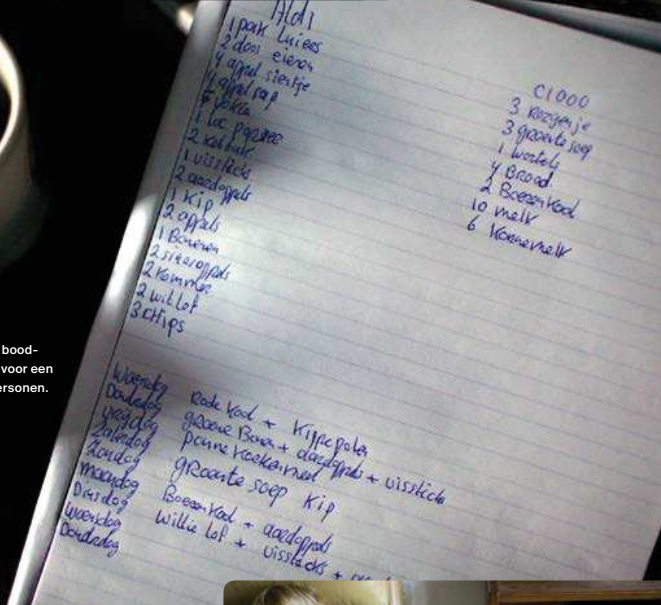 Aldi
1 pak luiers
2 doos eieren
4 appel sientje
4 appelsap
1
2
1 vissticks
2 aardappels
1 Kip
2 appels
1 Bananen
2 sinesappels
2 Kommer
2 wit lof
3 CHips
C1000
3 Rozijntje
3 groente soep
1 wortels
4 Brood
2 Boerenkool
10 melk
6 Karnemelk
bood-
voor een
ersonen.
Woensdag Rode Kool + Kippepoten
Donderdag groene Bonen + aardappels + vissticks
vrijdag pannekoekenmeel
Zaterdag groente soep Kip
Zondag
maandag Boerenkool + aardappels
Dinsdag Willie Lof + vissticks +
Woensdag
Donderdag